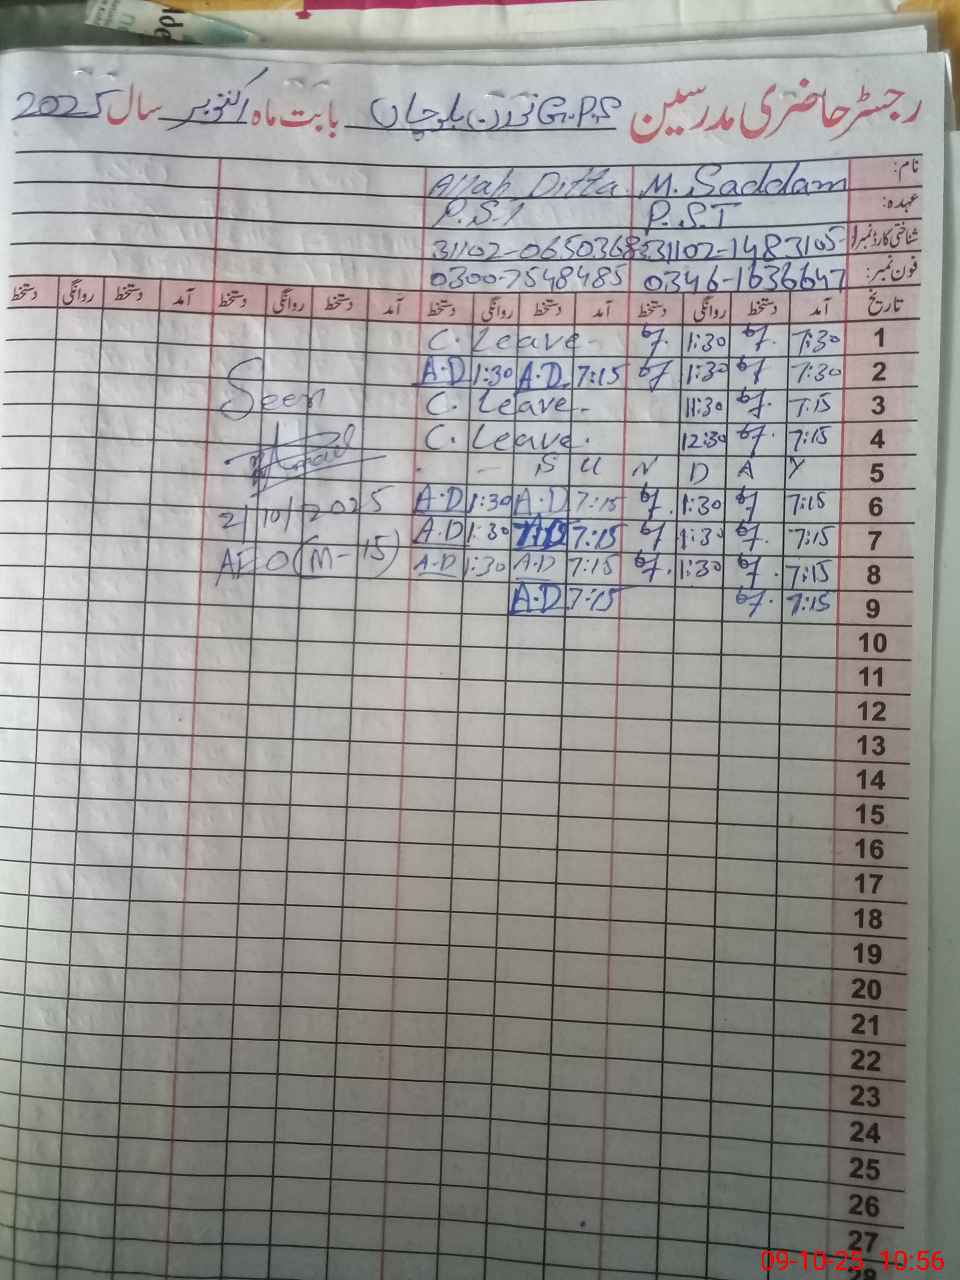 رجسٹر حاضری مدرسین G.P.S بلوچاں بابت ماہ اکتوبر سال 2025
نام: M. Saddam Allah Ditta
عہدہ: P.S.T P.S.T
شناختی کارڈ نمبر 31102-1483105- 31102-0650368
فون نمبر: 0346-1636647 0300-7548485
تاریخ آمد دستخط روانگی دستخط آمد دستخط روانگی دستخط آمد دستخط روانگی دستخط آمد دستخط روانگی دستخط
1 7:30 1:30 C. Leave
2 7:30 1:30 7:15 A.D 1:30 A.D
3 7:15 11:30 C. Leave
4 7:15 12:30 C. Leave
5 SUNDAY
6 7:15 1:30 7:15 A.D 1:30 A.D
7 7:15 1:30 7:15 A.D 1:30 A.D
8 7:15 1:30 7:15 A.D 1:30 A.D
9 7:15 7:15 A.D
10
11
12
13
14
15
16
17
18
19
20
21
22
23
24
25
26
27
28
Seen
2/10/2025
AEO (M-15)
09-10-25 10:56